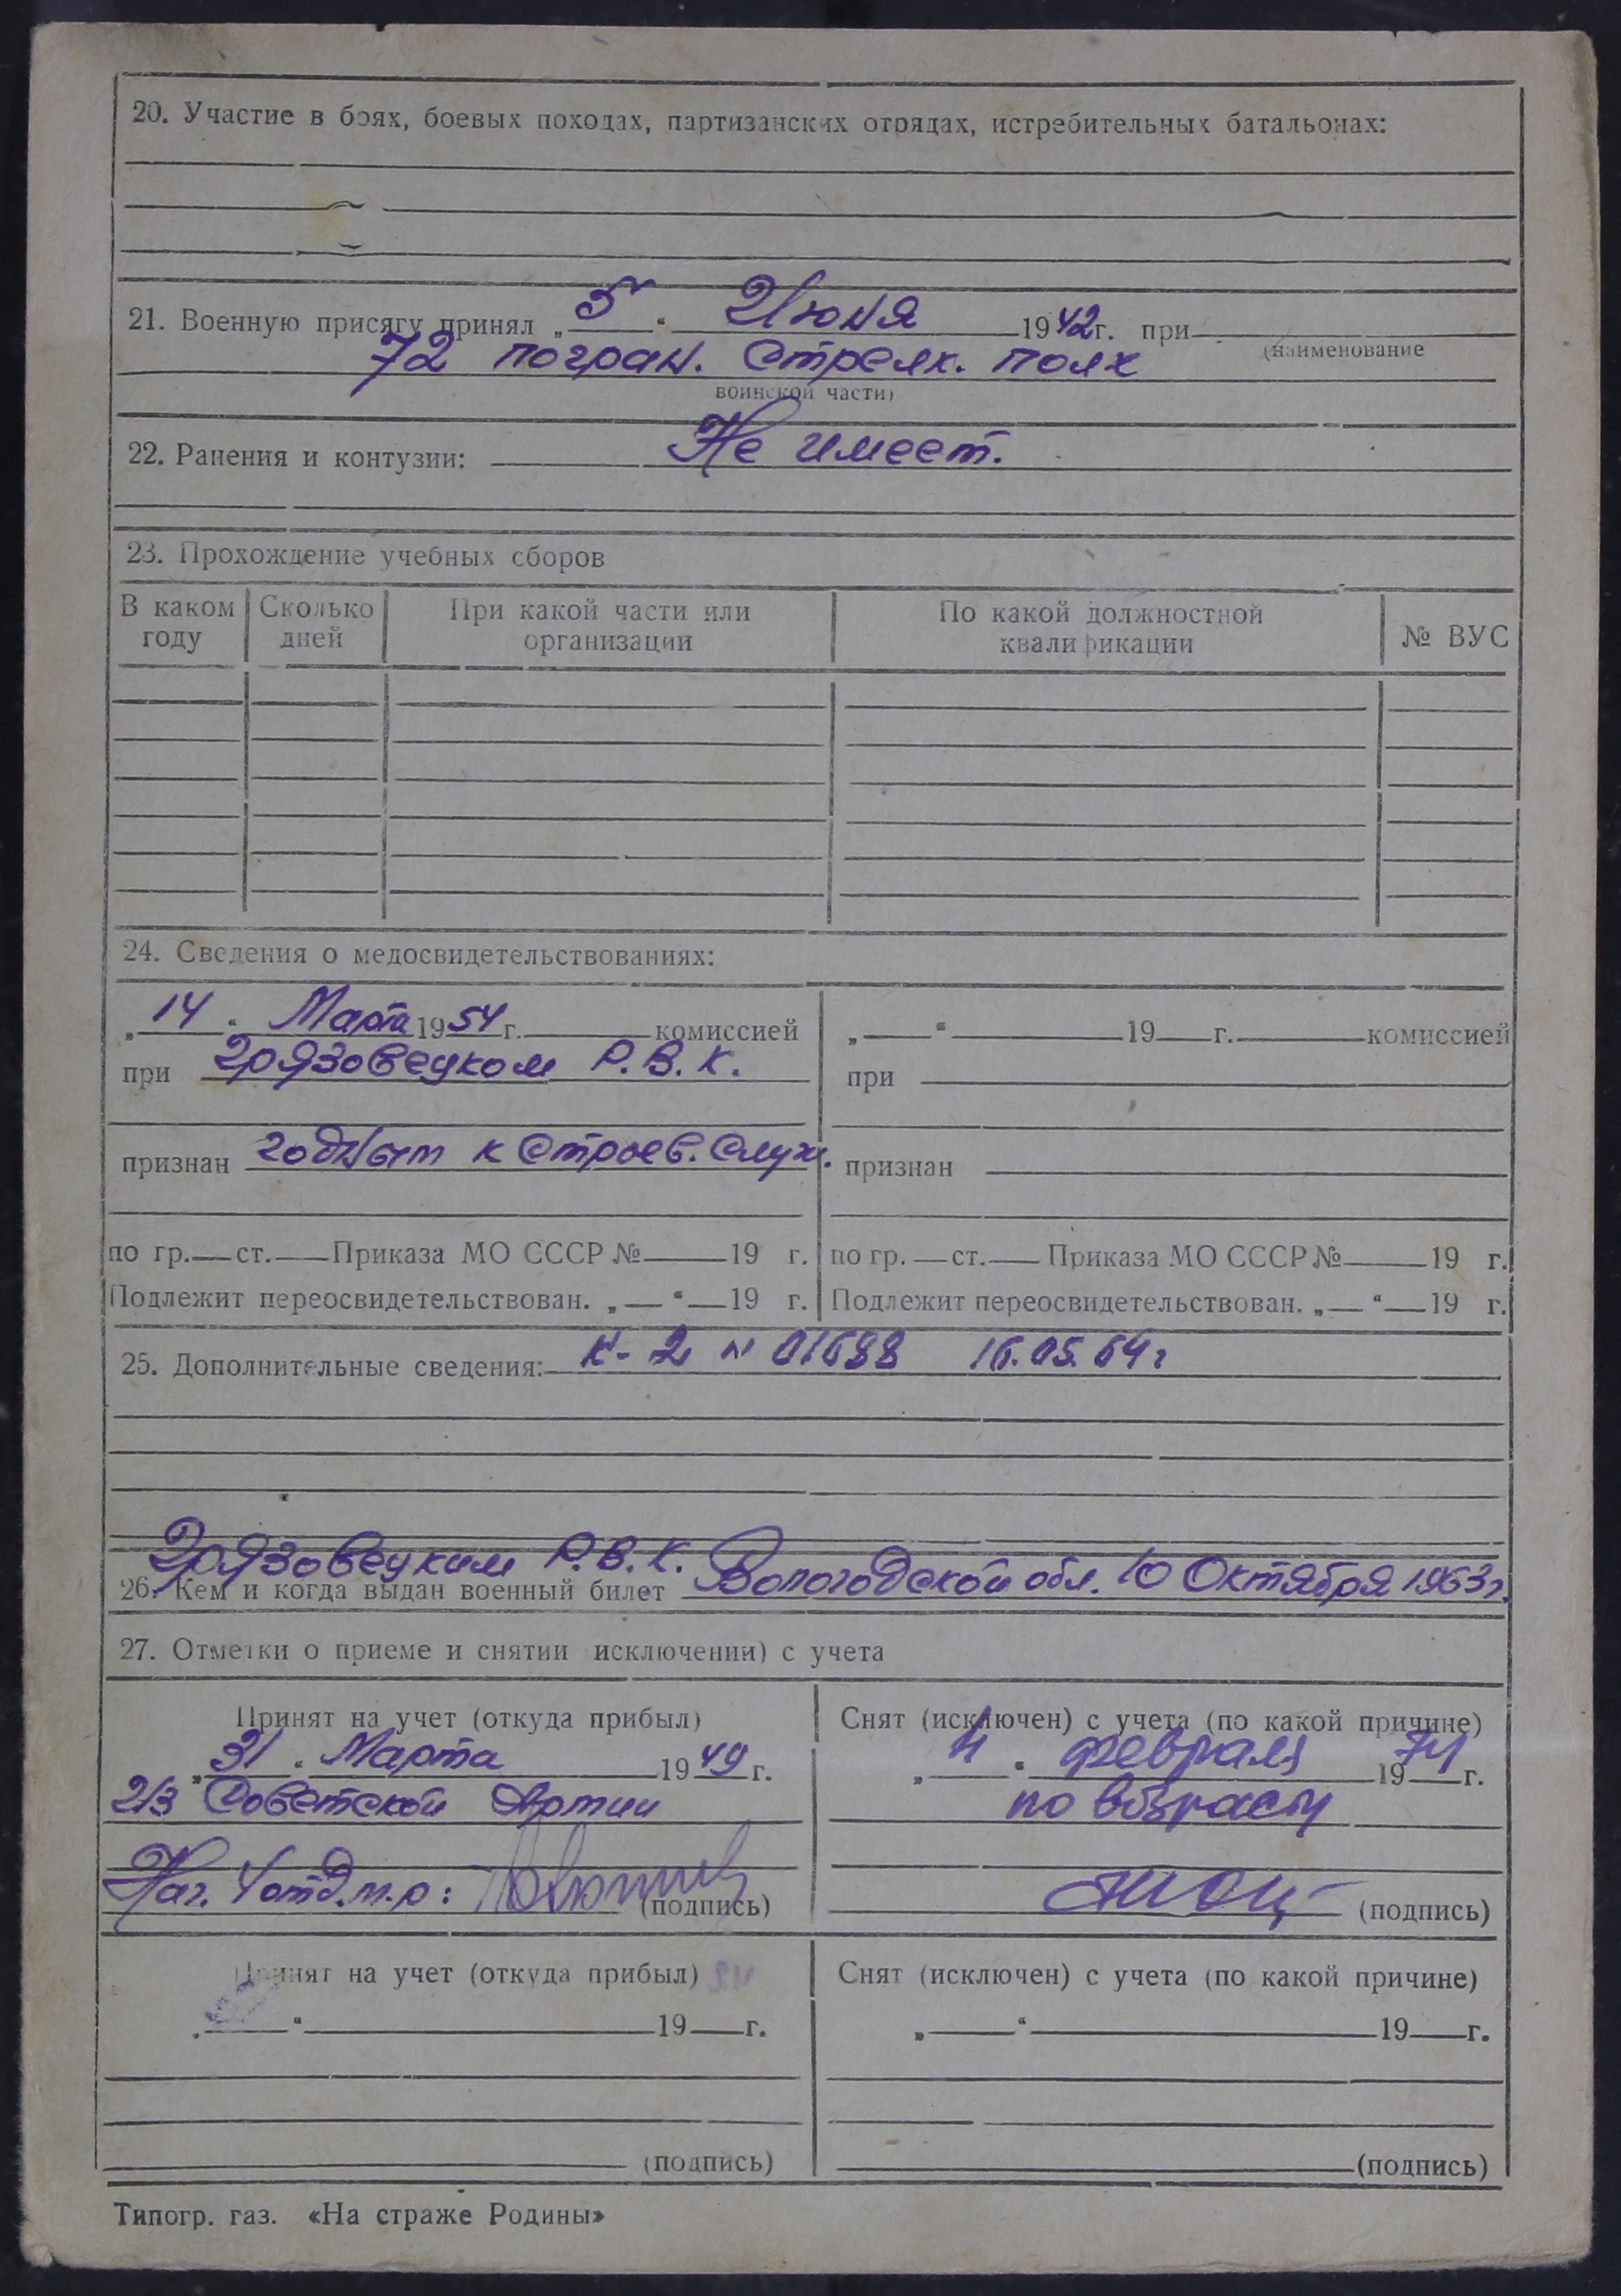 20. Участие в боях, боевых походах, партизанских отрядах, истребительных батальонах:
21. Военную присягу принял „5“ Июня 1942г. при
(наименование
72 погран. Стрелк. полк
воинской части)
22. Ранения и контузии: Не имеет.
23. Прохождение учебных сборов
В каком году Сколько дней При какой части или организации По какой должностной квалификации № ВУС
24. Сведения о медосвидетельствованиях:
„14“ Марта 1954г. комиссией
при Грязовецком Р.В.К.
признан годным к Строев. Служ.
по гр. ст. Приказа МО СССР № 19 г.
Подлежит переосвидетельствован. „ “ 19 г.
„ “ 19 г. комиссией
при
признан
по гр. ст. Приказа МО СССР № 19 г.
Подлежит переосвидетельствован. „ “ 19 г.
25. Дополнительные сведения: К-2 № 01688 16.05.64г
Грязовецким Р.В.К.
26. Кем и когда выдан военный билет Вологодской обл. 10 Октября 1963г.
27. Отметки о приеме и снятии исключении) с учета
Принят на учет (откуда прибыл)
„31“ Марта 1949г.
из Советской Армии
Нач. 4 отд.
(подпись)
Снят (исключен) с учета (по какой причине)
„4“ февраля 1974г.
по возрасту
(подпись)
Принят на учет (откуда прибыл)
„ “ 19 г.
(подпись)
Снят (исключен) с учета (по какой причине)
„ “ 19 г.
(подпись)
Типогр. газ. «На страже Родины»